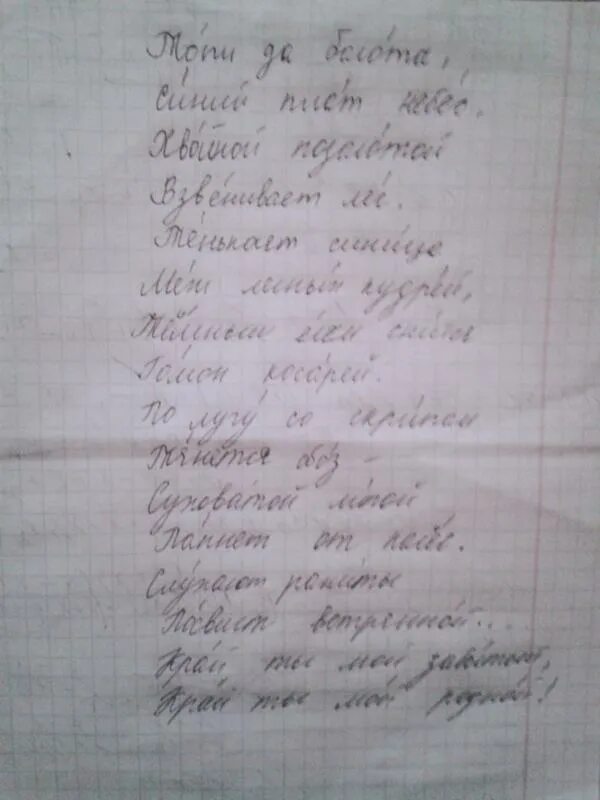 То́пи да боло́та,
Си́ний пла́т небе́с.
Хво́йной позоло́той
Взве́нивает ле́с.
Те́нькает сини́ца
Ме́ж лесны́х кудре́й,
Тёмным е́лям сни́тся
Го́мон косаре́й.
По лугу́ со скри́пом
Тя́нется обо́з –
Сухова́той ли́пой
Па́хнет от колёс.
Слу́хают раки́ты
По́свист ветряно́й...
Кра́й ты мой забы́тый,
Кра́й ты мо́й родно́й!